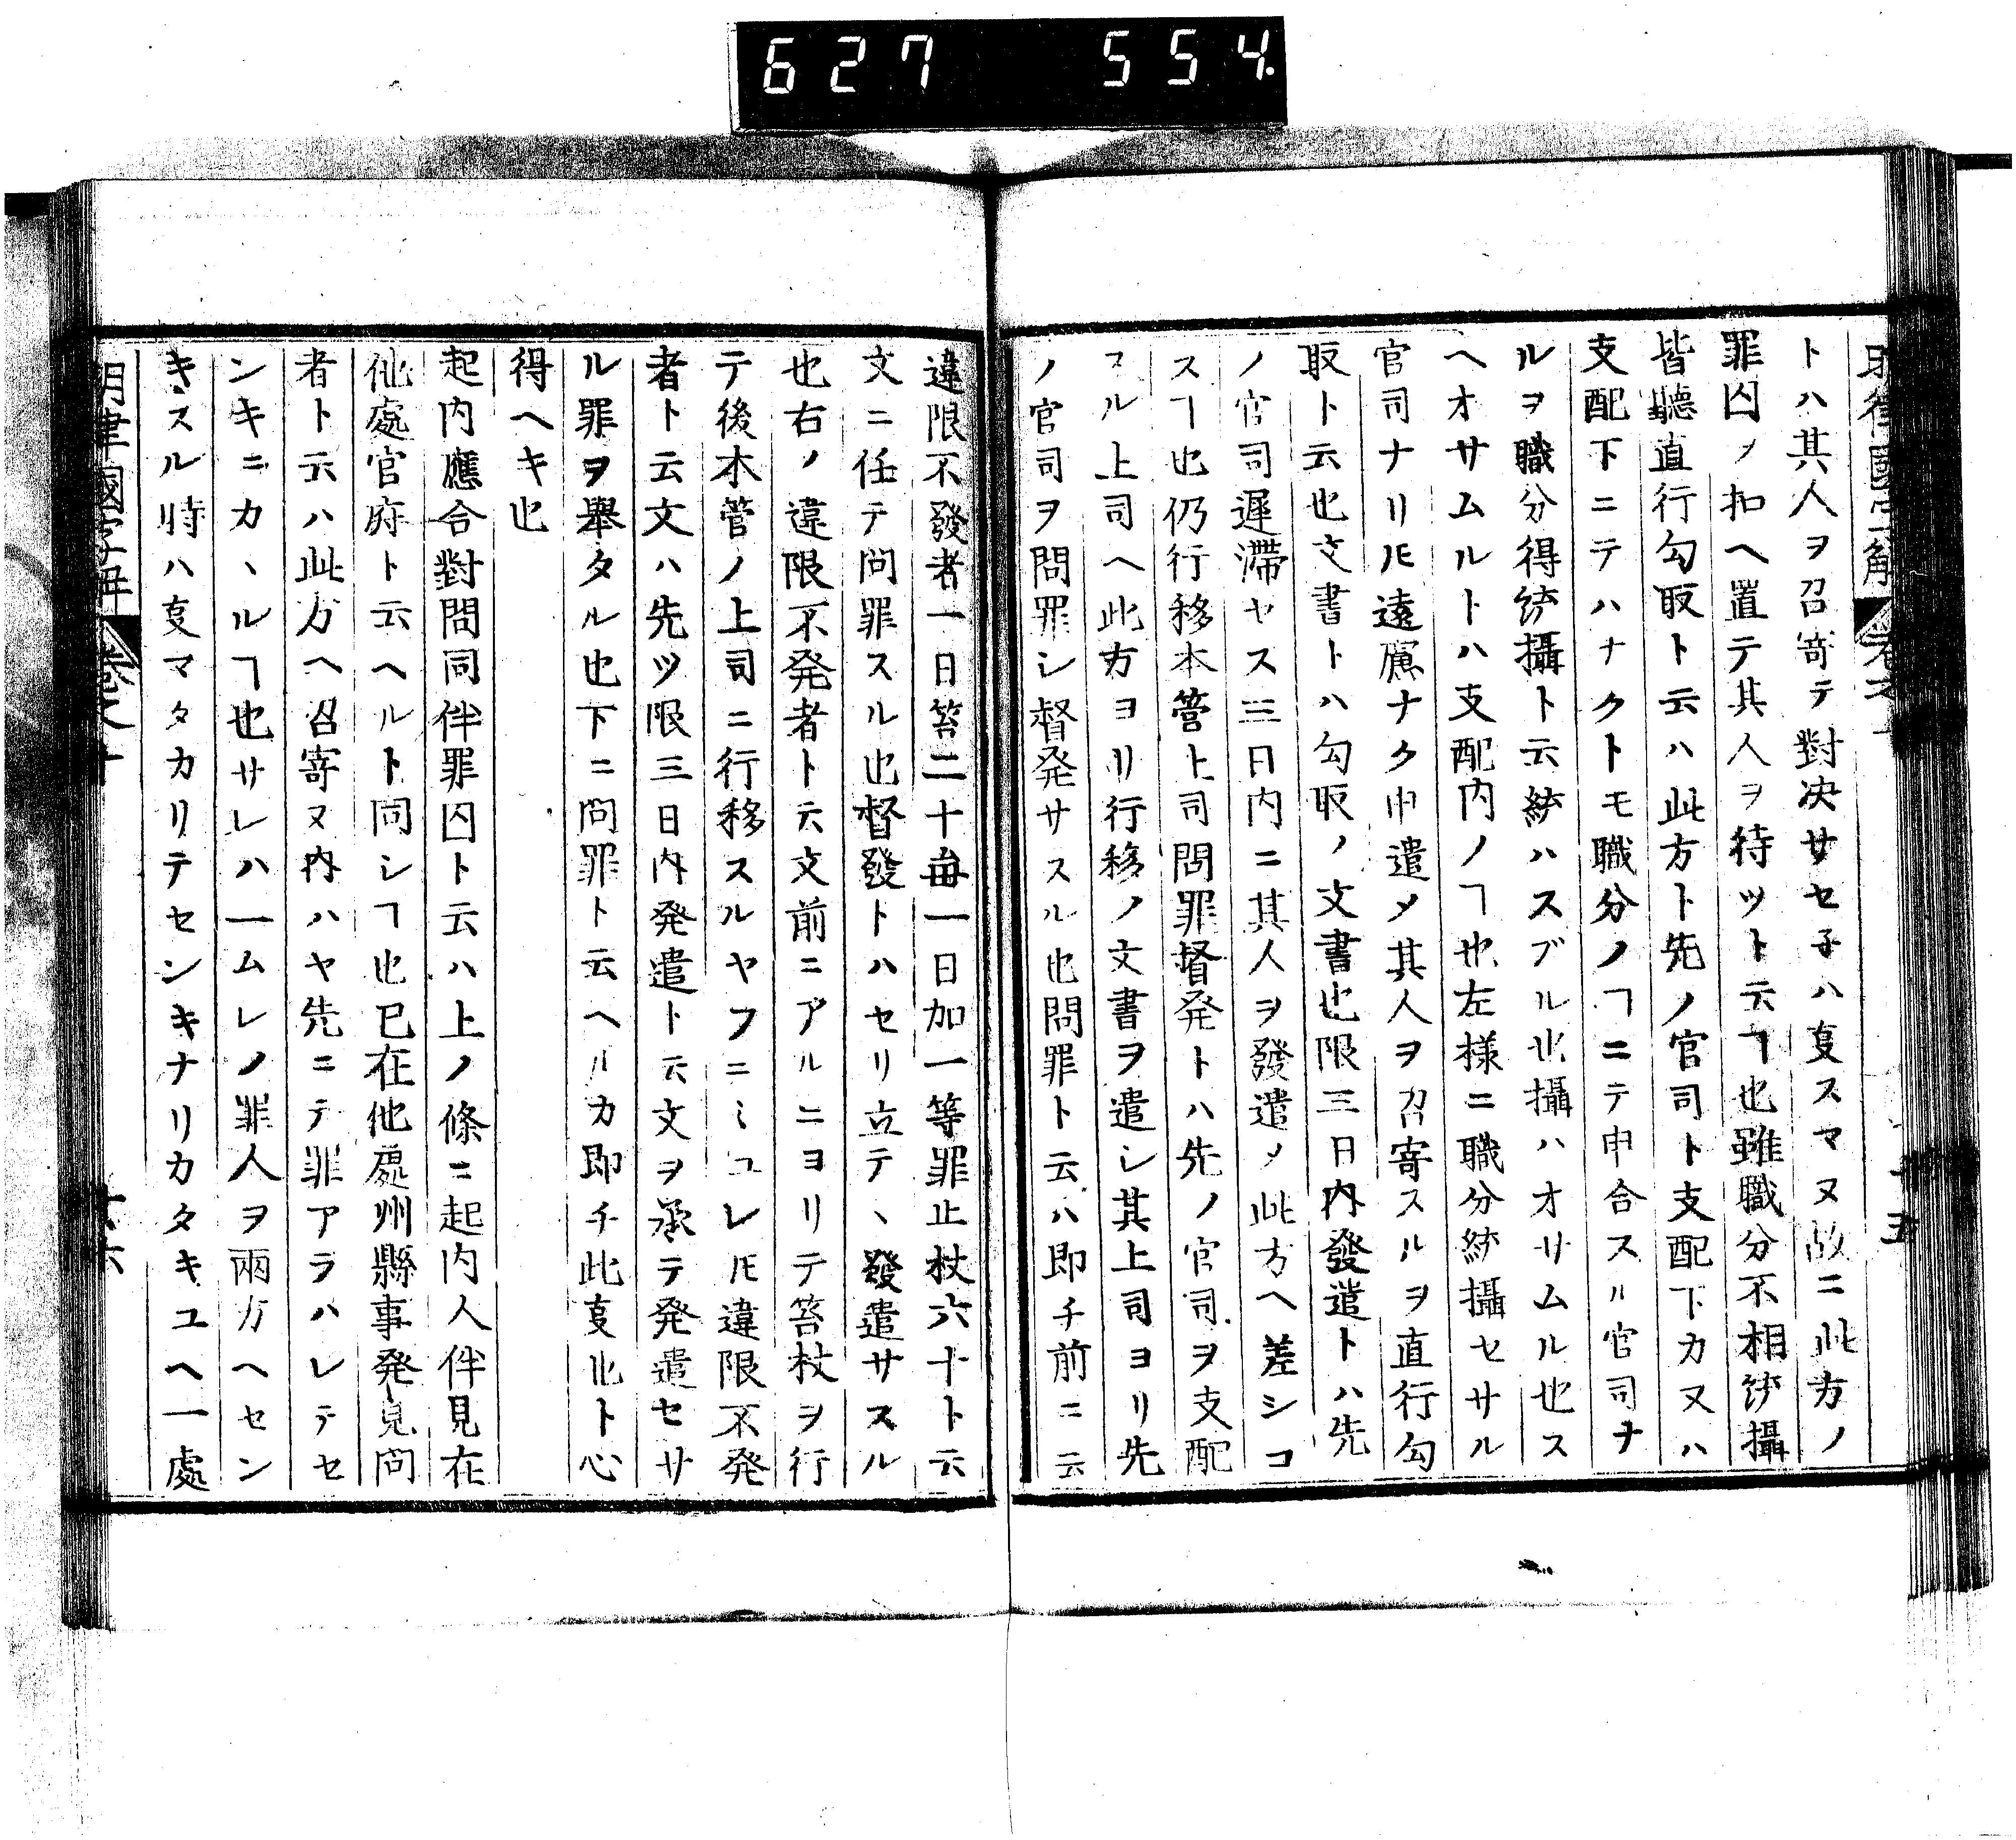 627 554.
トハ其人ヲ召寄テ對决サセ子ハ㕝スマヌ故ニ此方ノ
罪囚ノ扣ヘ置テ其人ヲ待ツト云ヿ也雖職分不相統攝
皆聽直行勾取ト云ハ此方ト先ノ官司ト支配下カ又ハ
支配下ニテハナクトモ職分ノヿニテ申合スル官司ナ
ルヲ職分得統攝ト云統ハスブル也攝ハオサムル也ス
ヘオサムルトハ支配内ノヿ也左様ニ職分統攝セサル
官司ナリ𪜈遠慮ナク申遣〆其人ヲ召寄スルヲ直行勾
取ト云也文書トハ勾取ノ文書也限三日内發遣トハ先
ノ官司遲滯ヤス三日内ニ其人ヲ發遣〆此方ヘ差シコ
スヿ也仍行移本管上司問罪督発トハ先ノ官司ヲ支配
スル上司ヘ此方ヨリ行移ノ文書ヲ遣シ其上司ヨリ先
ノ官司ヲ問罪シ督発サスル也問罪ト云ハ即チ前ニ云
違限不發者一日笞二十毎一日加一等罪止杖六十ト云
文ニ任テ問罪スル也督發トハセリ立テ、發遣サスル
也右ノ違限不発者ト云文前ニアルニヨリテ笞杖ヲ行
テ後本管ノ上司ニ行移スルヤフニミユレ𪜈違限不発
者ト云文ハ先ツ限三日内発遣ト云文ヲ承テ発遣セサ
ル罪ヲ舉タル也下ニ問罪ト云ヘルカ即チ此㕝也ト心
得ヘキ也
起内應合對問同伴罪囚ト云ハ上ノ條ニ起内人伴見在
他處官府ト云ヘルト同シヿ也已在他處州縣事発見問
者ト云ハ此方ヘ召寄ヌ内ハヤ先ニテ罪アラハレテセ
ンキニカ、ルヿ也サレハ一ムレノ罪人ヲ兩方ヘセン
キスル時ハ㕝マタカリテセンキナリカタキユヘ一處
明律國字解 卷之十